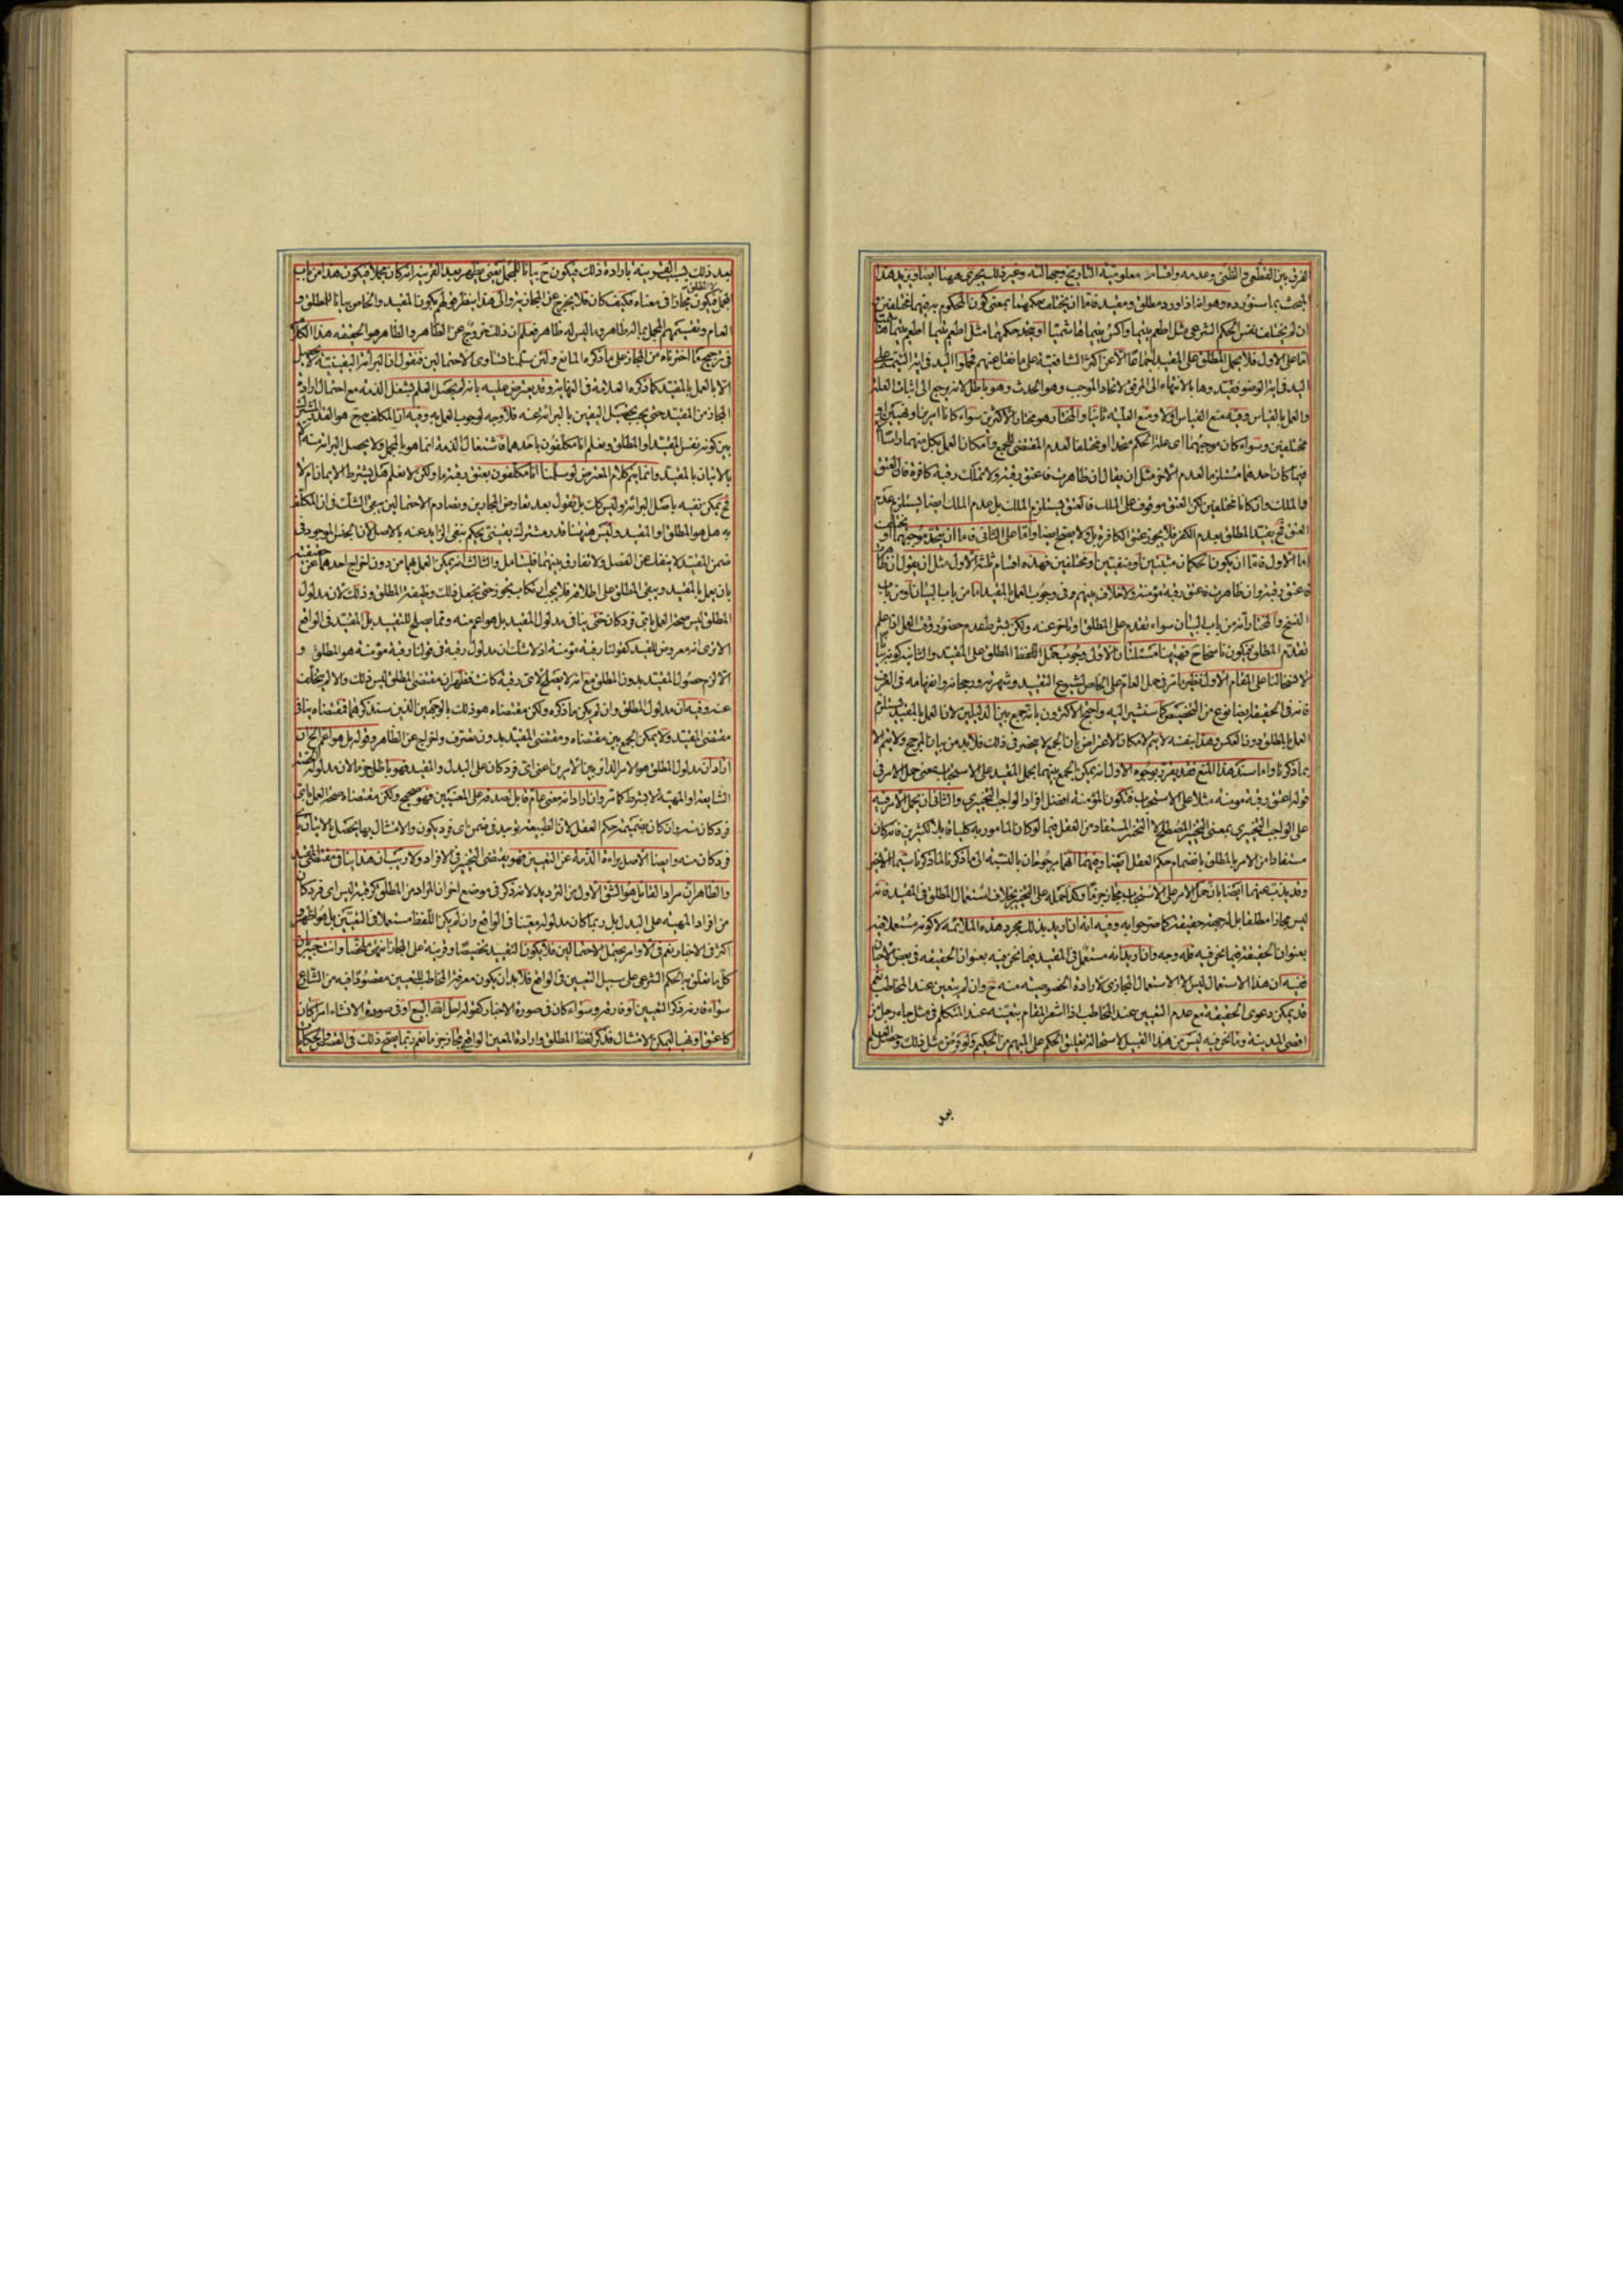 الفرق بين القطعي والظني وعدمه واقسام معلومية التاريخ وجهالته وغير ذلك يجري ههنا ايضا ويزيد هذا
المبحث بما سنورده وهو انه اذا ورد مطلق ومقيد فاما ان يختلف حكمهما بمعنى كون المحكوم به فيهما مختلفين
ان لم يختلف نفس الحكم الشرعي مثل اطعم يتيما واكس يتيما هاشميا او يتحد حكمهما مثل اطعم يتيما اطعم يتيما هاشميا
اما على الاول فلا يحمل المطلق على المقيد اجماعا الا عن اكثر الشافعية على ما نقل عنهم فحملوا اليد في اية التيمم على
اليد في اية الوضوء فقيدوها بالانتهاء الى المرفق لاتحاد الموجب وهو الحدث وهو باطل لانه يرجع الى اثبات العلة
والعمل بالقياس وفيه منع القياس اولا ومنع العلية ثانيا والمختار هو مختار الاكثرين سواء كانا امرين او نهيين او
مختلفين وسواء كان موجبهما اي علة الحكم متحدا او مختلفا لعدم المقتضي للجمع وامكان العمل بكل منهما واما
فيما كان احدهما مستلزما لعدم الاخر مثل ان يقال ان ظاهرت فاعتق رقبة ولا تملك رقبة كافرة فان العتق
والملك وان كانا مختلفين لكن العتق موقوف على الملك فالعتق يستلزم الملك بل عدم الملك ايضا يستلزم عدم
العتق فح يقيد المطلق بعدم الكفر فلا يجوز عتق الكافرة بل ولا يصح ايضا واما على الثاني فاما ان يتحد موجبهما او يختلف
اما الاول فاما ان يكونا الحكمان مثبتين او منفيين او مختلفين فهذه اقسام ثلثة الاول مثل ان يقول ان ظاهرت
فاعتق رقبة وان ظاهرت فاعتق رقبة مؤمنة ولا خلاف بينهم في وجوب العمل بالمقيد اما من باب البيان او من باب
النسخ والمختار انه من باب البيان سواء تقدم على المطلق او تاخر عنه ولكن بشرط عدم حضور وقت العمل اذا علم
تقدم المطلق فيكون ناسخا ح فههنا مسئلتان الاولى وجوب حمل اللفظ المطلق على المقيد والثانية كونه بيانا
لنا على المقام الاول نظير ما مر في حمل العام على الخاص لشيوع التقييد وشهرته ورجحانه وانفهامه في العرف
فانه في الحقيقة ايضا نوع من التخصيص كما سنشير اليه واحتج الاكثرون بانه جمع بين الدليلين لان العمل بالمقيد يستلزم
العمل بالمطلق دون العكس وهذا بنفسه لا يتم لامكان الاعتراض بان الجمع لا ينحصر في ذلك فلابد من بيان المرجح ولا يتم الا
بما ذكرنا واما سند هذا المنع فقد يقرر بوجوه الاول انه يمكن الجمع بينهما بحمل المقيد على الاستحباب بمعنى حمل الامر في
قوله اعتق رقبة مؤمنة مثلا على الاستحباب فتكون المؤمنة افضل افراد الواجب التخييري والثاني ان يحمل الامر فيه
على الواجب التخييري بمعنى التخيير المصطلح لا التخيير المستفاد من العقل فيما لو كان المامور به كليا قابلا لكثيرين فانه كان
مستفادا من الامر بالمطلق بانضمام حكم العقل ايضا وفيهما انهما مرجوحان بالنسبة الى ما ذكرنا لما ذكرنا سيما الاخير
وقد يذب عنهما ايضا بان حمل الامر على الاستحباب مجاز جزما وكذا حمله على التخيير بخلاف استعمال المطلق في المقيد فانه
ليس مجازا مطلقا بل له جهة حقيقة كما صرحوا به وفيه انه ان اريد بذلك مجرد هذه الملائمة لا كونه مستعملا فيه
بعنوان الحقيقة فيما نحن فيه فله وجه وان اريد انه مستعمل في المقيد فيما نحن فيه بعنوان الحقيقة في بعض الاحيان
ففيه ان هذا الاستعمال ليس الا الاستعمال المجازي لارادة الخصوصية منه ح وان لم يتعين عند المخاطب نعم
قد يمكن دعوى الحقيقة مع عدم التعيين عند المخاطب اذا اشعر المقام بتعينه عند المتكلم في مثل جاء رجل من
اقصى المدينة وما نحن فيه ليس من هذا القبيل لاستحالة تعليق الحكم على المبهم من الحكيم ولو فرض مثل ذلك وحصل العلم
بعد
بعد ذلك بسبب القرينة بارادة ذلك فيكون ح بيانا للمجمل يعني يظهر بعد القرينة انه كان مجملا فيكون هذا من باب
المجاز فيكون مجازا في معناه فكيف كان فلا يخرج عن المجازية والى هذا ينظر قولهم يكون المقيد والخاص بيانا للمطلق و
العام وتقسيمهم المجمل بما له ظاهر وما ليس له ظاهر فعلم ان ذلك خروج عن الظاهر والظاهر هو الحقيقة هذا الكلام
في ترجيح ما اخترناه من المجاز على ما ذكره المانع ولئن سلمنا تساوي الاحتمالين فنقول ان البرائة اليقينية لا يحصل
الا بالعمل بالمقيد كما ذكره العلامة في النهاية وقد يعترض عليه بانه لم يحصل العلم بشغل الذمة مع احتمال ارادة
المجاز من المقيد حتى يجب تحصيل اليقين بالبرائة عنه فلا وجه لوجوب العمل به وفيه ان المكلف به ح هو القدر المشترك
بين كونه نفس المقيد او المطلق ونعلم انا مكلفون باحدهما فاشتغال الذمة انما هو بالمجمل ولا يحصل البرائة منه الا
بالاتيان بالمقيد وانما يتم كلام المعترض لو سلمنا انا مكلفون بعتق رقبة ما ولكن لا نعلم هل يشترط الايمان ام لا
فح يمكن نفيه باصل البرائة وليس كك بل نقول بعد تعارض المجازين وتصادم الاحتمالين يبقى الشك في ان المكلف
به هل هو المطلق او المقيد وليس ههنا قدر مشترك يقيني يحكم بنفي الزايد عنه بالاصل لان الجنس الموجود في
ضمن المقيد لا ينفك عن الفصل ولا تفارق بينهما فليتامل والثالث انه يمكن العمل بهما من دون اخراج احدهما عن حقيقته
بان يعمل بالمقيد ويبقى المطلق على اطلاقه فلا يجب ارتكاب تجوز حتى يجعل ذلك وظيفة المطلق وذلك لان مدلول
المطلق ليس صحة العمل باي فرد كان حتى ينافي مدلول المقيد بل هو اعم منه ومما يصلح للتقييد بل المقيد في الواقع
الا ترى انه معروض للقيد كقولنا رقبة مؤمنة اذ لا شك ان مدلول رقبة في قولنا رقبة مؤمنة هو المطلق و
الا لزم حصول المقيد بدون المطلق مع انه لا يصلح لاي رقبة كانت فظهر ان مقتضى المطلق ليس ذلك والا لم يتخلف
عنه وفيه ان مدلول المطلق وان لم يكن ما ذكره ولكن مقتضاه هو ذلك بالوجهين الذين سنذكرهما فمقتضاه ينافي
مقتضى المقيد ولا يمكن الجمع بين مقتضاه ومقتضى المقيد بدون تصرف واخراج عن الظاهر وقوله بل هو اعم الخ ان
اراد ان مدلول المطلق هو الامر الدائر بين الامرين اعني اي فرد كان على البدل والمقيد فهو باطل جزما لان مدلوله الحصة
الشايعة او المهية لا بشرط كما مر وان اراد انه معنى عام قابل لصدقه على المعنيين فهو صحيح ولكن مقتضاه صحة العمل باي
فرد كان منه وان كان بضميمة حكم العقل لان الطبيعة توجد في ضمن اي فرد يكون والامتثال بها يحصل بالاتيان باي
فرد كان منه وايضا الاصل براءة الذمة عن التعيين فهو يقتضي التخيير في الافراد ولا ريب ان هذا ينافي مقتضى المقيد
والظاهر ان مراد القائل هو الشق الاول من الترديد لانه ذكر في موضع اخر ان المراد من المطلق كرقبة ليس اي فرد كان
من افراد المهية على البدل بل ربما كان مدلوله معينا في الواقع وان لم يكن اللفظ مستعملا في التعيين بل هو اظهر و
اكثر في الاخبار نعم في الاوامر يحتمل الاحتمالين فلا يكون التقييد تخصيصا وقرينة على المجاز انتهى ملخصا وانت خبير بان
كل ما يتعلق به الحكم الشرعي على سبيل التعيين في الواقع فلابد ان يكون معرفة المخاطب للتعيين مقصودا فيه من الشارع
سواء قارنه ذكر التعيين او فارقه وسواء كان في صورة الاخبار كقوله احل الله البيع او في صورة الانشاء امرا كان
كاعتق او نهيا ليمكن الامتثال فذكر لفظ المطلق وارادة المعين الواقعي مجاز جزما نعم ربما يصح ذلك في القصص والحكايات